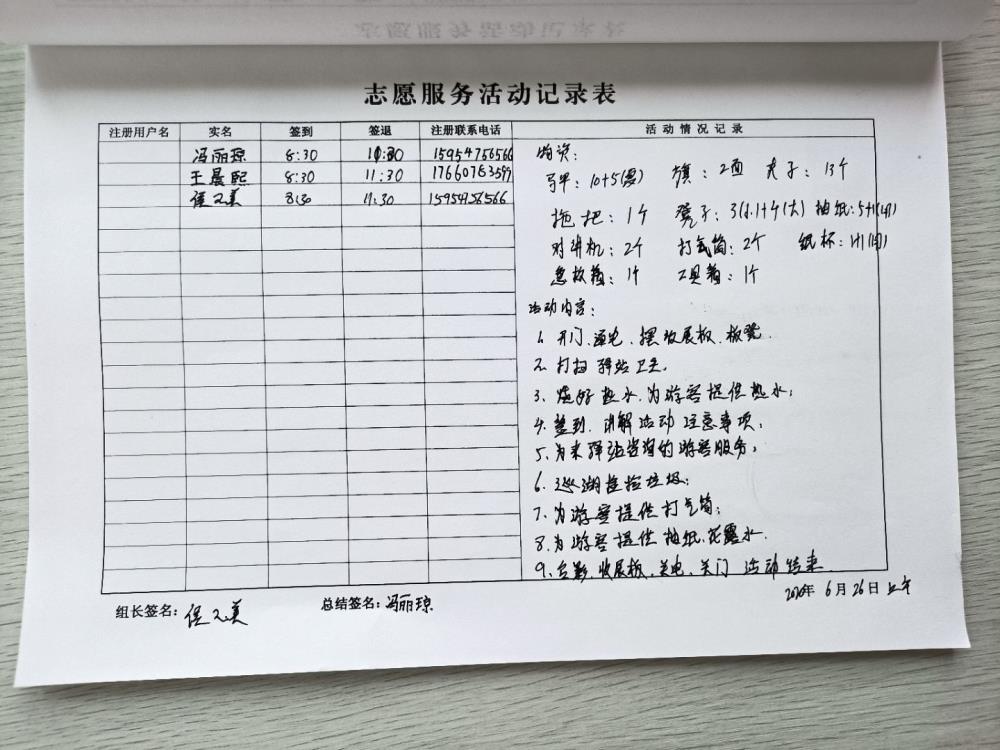 志愿服务活动记录表
注册用户名 实名 签到 签退 注册联系电话 活动情况记录
冯丽琼 8:30 11:30 15954756566
王晨熙 8:30 11:30 17660783599
侯又美 8:30 11:30 15954756566
物资:
马甲: 10+5(男) 旗: 2面 夹子: 13个
拖把: 1个 凳子: 3(小)+4(大) 抽纸:5+1(切)
对讲机: 2个 打气筒: 2个 纸杯:
急救箱: 1个 工具箱: 1个
活动内容:
1. 开门、通电、摆放展板、板凳.
2. 打扫驿站卫生.
3. 烧好热水、为游客提供热水;
4. 签到、讲解活动注意事项;
5. 为来驿站咨询的游客服务;
6. 巡湖捡垃圾;
7. 为游客提供打气筒;
8. 为游客提供抽纸、花露水.
9. 合影、收展板、关电、关门 活动结束.
组长签名: 侯又美 总结签名: 冯丽琼
6月26日 上午